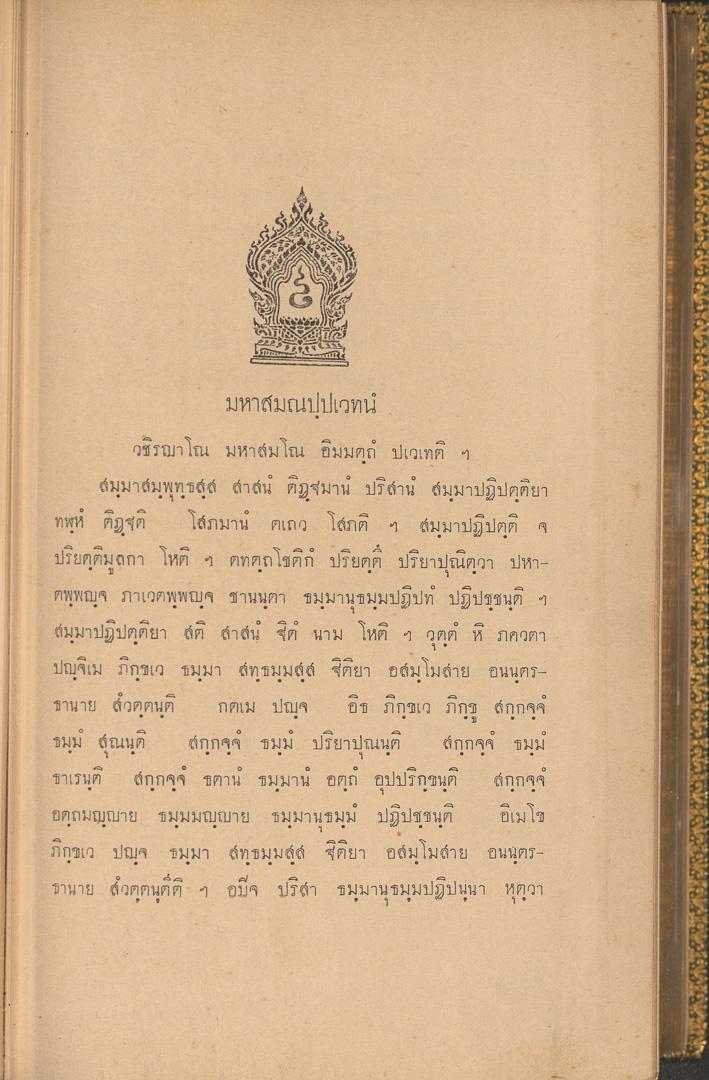 มหาสมณปฺปเวทนํ
วชิรญาโณ มหาสมโณ อิมมตฺถํ ปเวเทติ ฯ
สมฺมาสมฺพุทฺธสฺส สาสนํ ติฏฺฐมานํ ปริสานํ สมฺมาปฏิปตฺติยา
ทฬฺหํ ติฏฺฐติ โสภมานํ ตเถว โสภติ ฯ สมฺมาปฏิปตฺติ จ
ปริยตฺติมูลกา โหติ ฯ ตทตฺถโชติกํ ปริยตฺตึ ปริยาปุณิตฺวา ปหา-
ตพฺพญฺจ ภาเวตพฺพญฺจ ชานนฺตา ธมฺมานุธมฺมปฏิปทํ ปฏิปชฺชนฺติ ฯ
สมฺมาปฏิปตฺติยา สติ สาสนํ ฐิตํ นาม โหติ ฯ วุตฺตํ หิ ภควตา
ปญฺจิเม ภิกฺขเว ธมฺมา สทฺธมฺมสฺส ฐิติยา อสมฺโมสาย อนนฺตร-
ธานาย สํวตฺตนฺติ กตเม ปญฺจ อิธ ภิกฺขเว ภิกฺขู สกฺกจฺจํ
ธมฺมํ สุณนฺติ สกฺกจฺจํ ธมฺมํ ปริยาปุณนฺติ สกฺกจฺจํ ธมฺมํ
ธาเรนฺติ สกฺกจฺจํ ธตานํ ธมฺมานํ อตฺถํ อุปปริกฺขนฺติ สกฺกจฺจํ
อตฺถมญฺญาย ธมฺมมญฺญาย ธมฺมานุธมฺมํ ปฏิปชฺชนฺติ อิเมโข
ภิกฺขเว ปญฺจ ธมฺมา สทฺธมฺมสฺส ฐิติยา อสมฺโมสาย อนนฺตร-
ธานาย สํวตฺตนฺตีติ ฯ อปิจ ปริสา ธมฺมานุธมฺมปฏิปนฺนา หุตฺวา